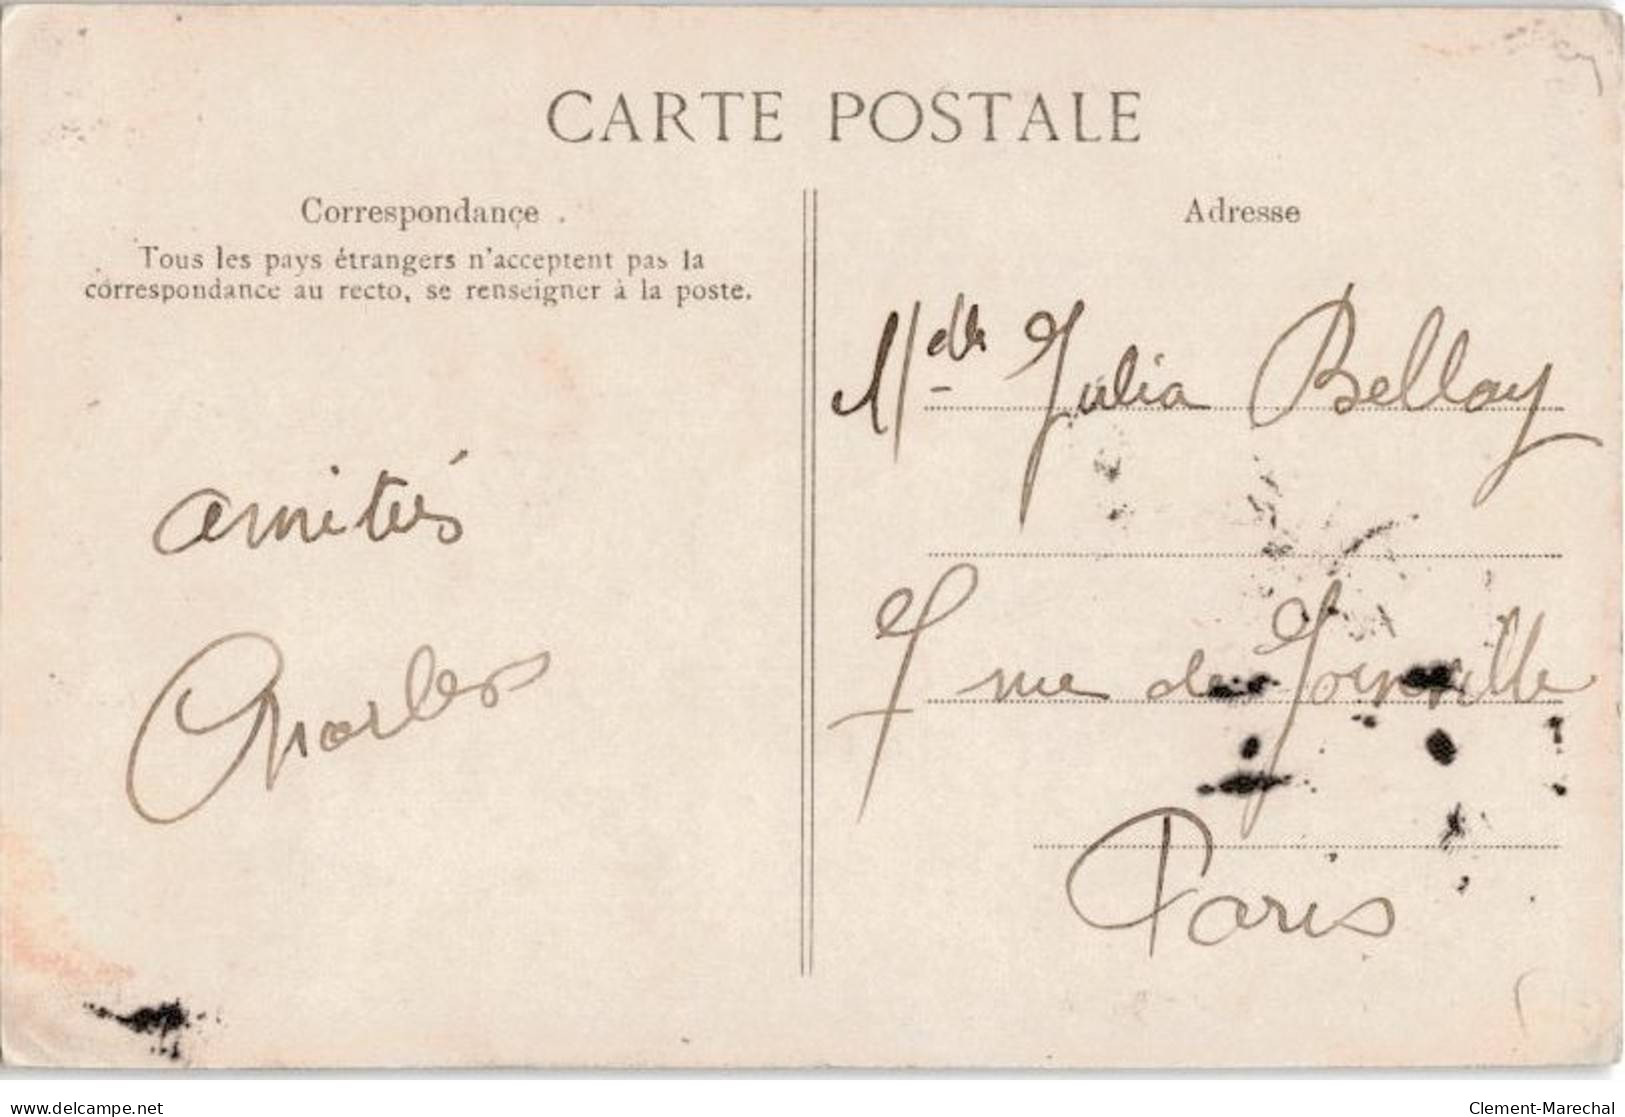 CARTE POSTALE
Correspondance
Tous les pays étrangers n'acceptent pas la
correspondance au recto, se renseigner à la poste.
amitiés
Charles
Adresse
Mdlle Julia Bellay
7 rue de Joinville
Paris
www.delcampe.net
Clement-Marechal